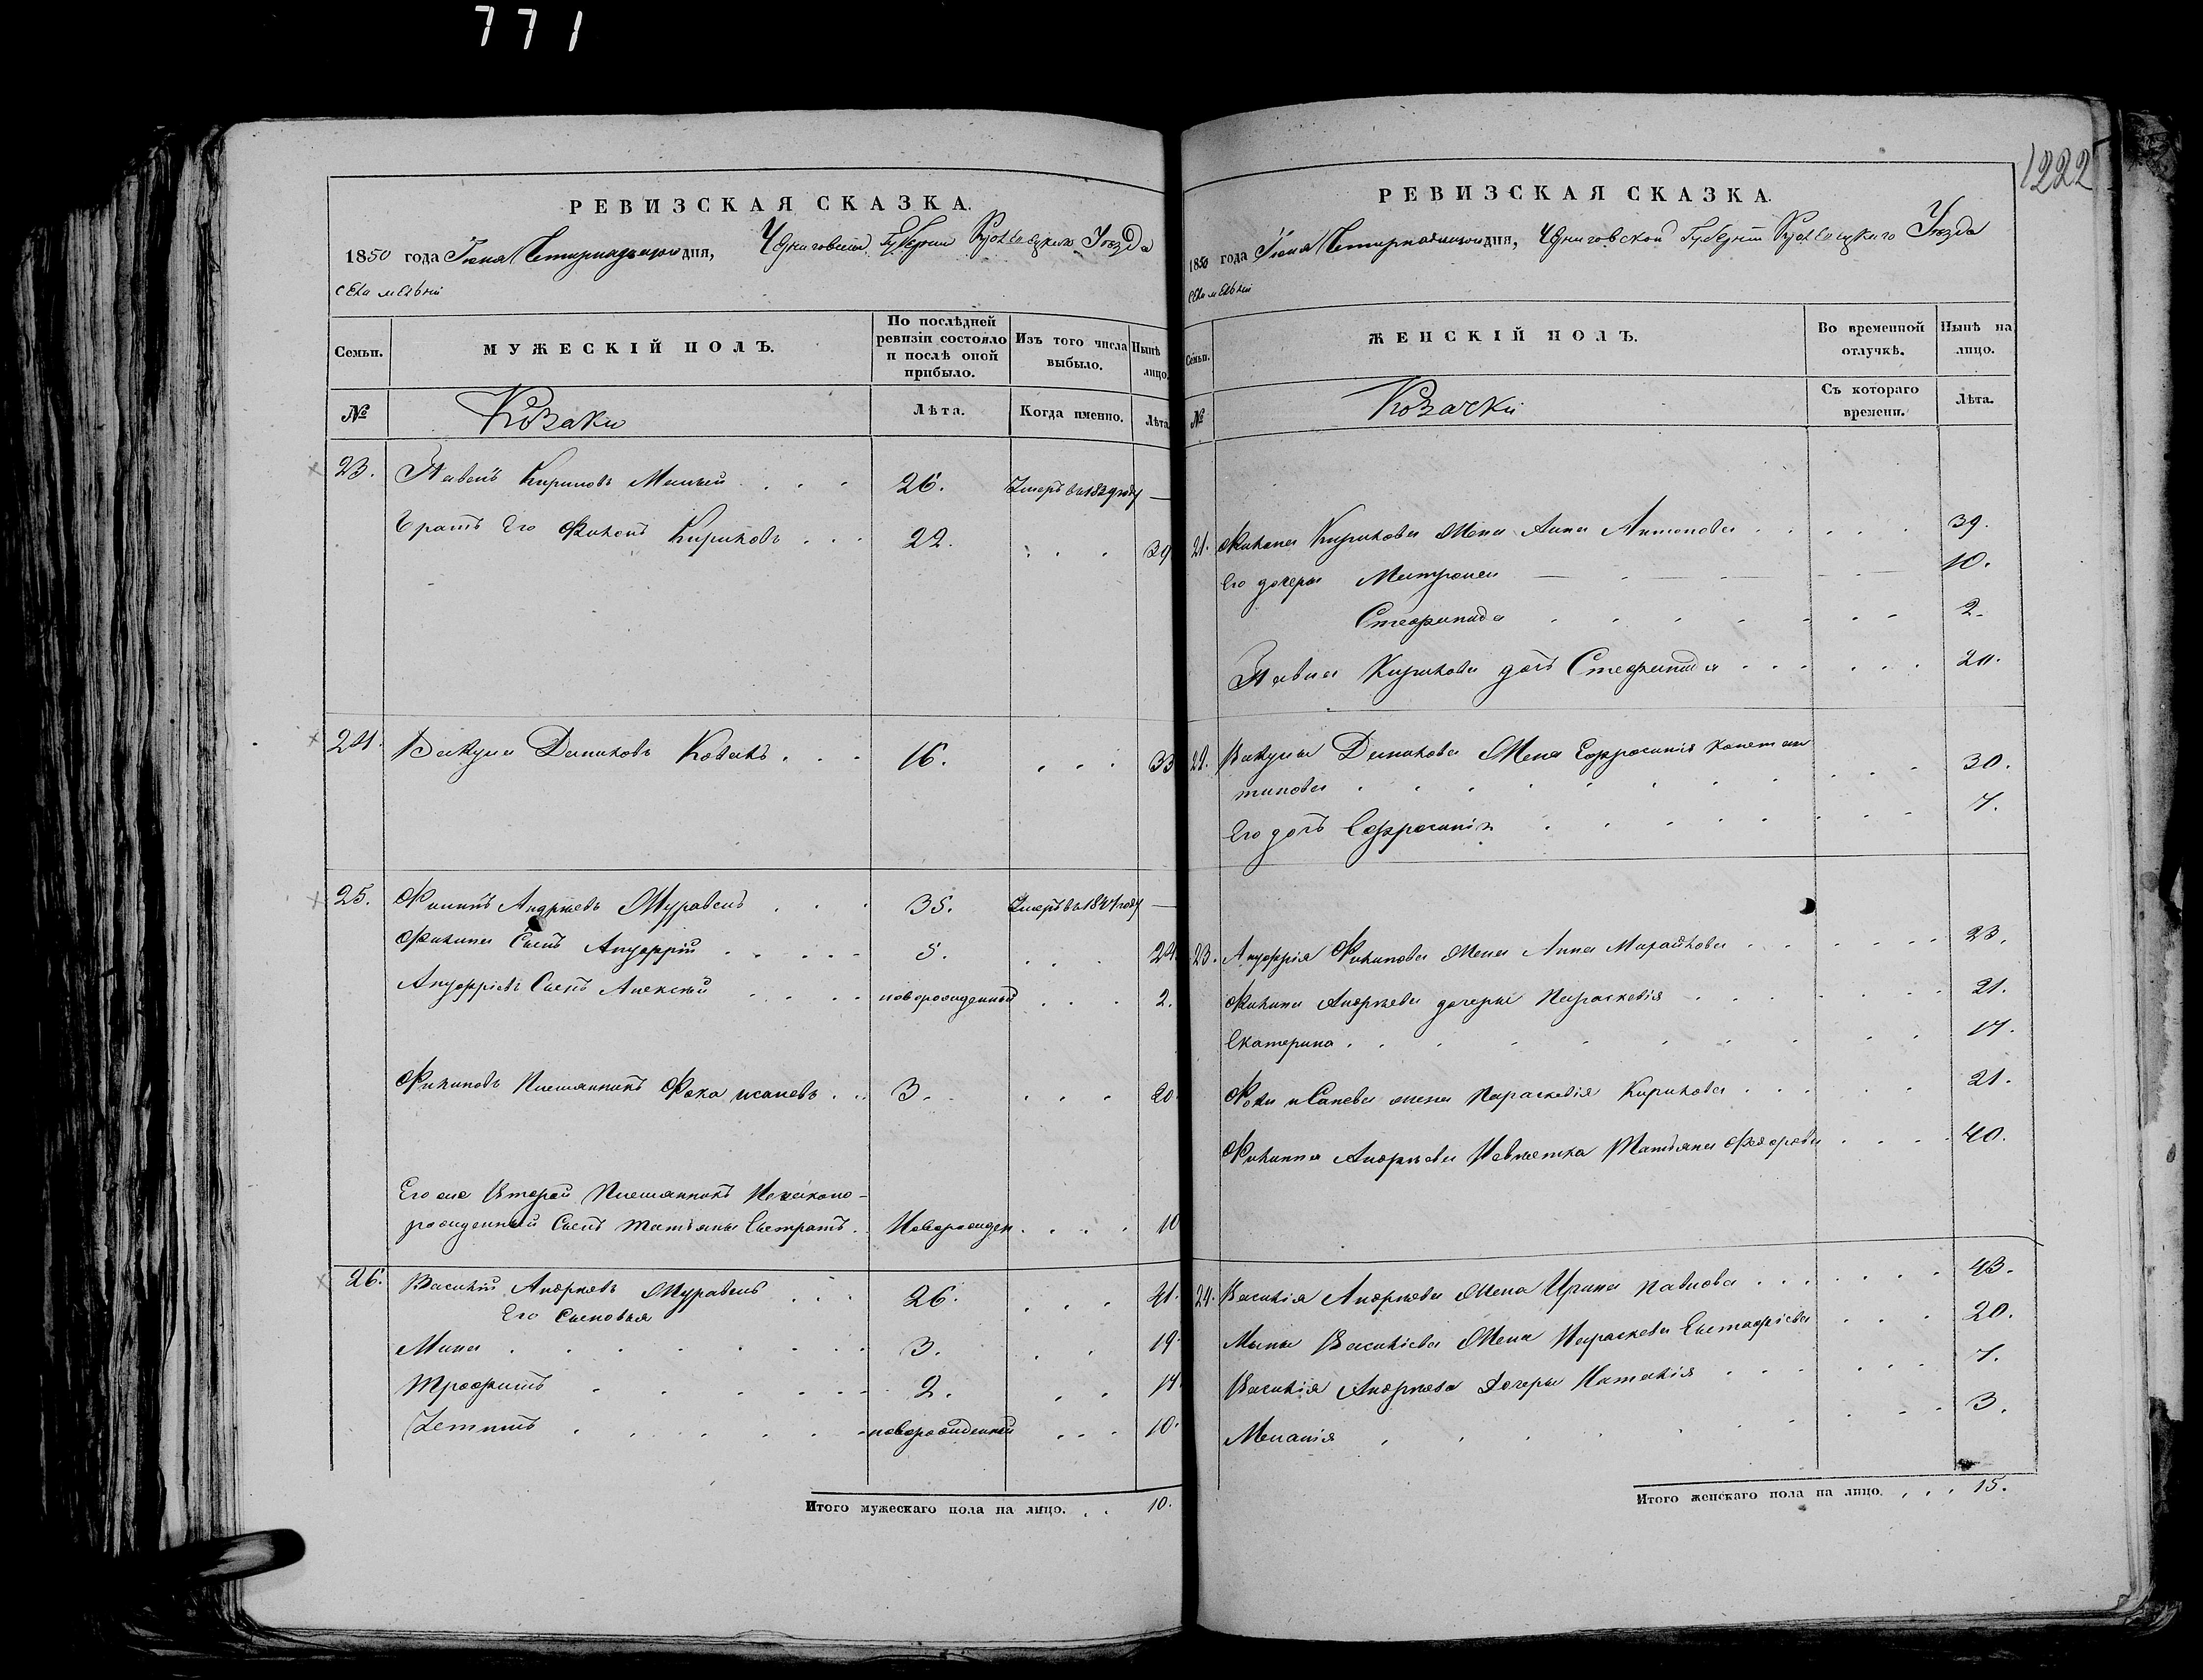 771
1222
РЕВИЗСКАЯ СКАЗКА.
1850 года Іюня Четырнадцатого дня, Черниговской Губерніи Уезда
села
Семьи.
МУЖЕСКІЙ ПОЛЪ.
По послѣдней ревизіи состояло и послѣ оной прибыло.
Изъ того числа выбыло.
Нынѣ лицо.
№
Козаки
Лѣта.
Когда именно.
Лѣта
23. Павелъ Кириловъ Малый 26. Умеръ въ 1839 году —
Братъ Его Филипъ Кириловъ 22. 39
24. Вакула Даниловъ Коваль 16. 33
25. Филипъ Андреевъ Журавель 35. Умеръ въ 1847 году —
Филипа Сынъ Ануфрій 5. 24
Ануфріевъ Сынъ Алексѣй новорожденный 2.
Филиповъ Племянникъ Фока Исаевъ 3. 20
Его же Второй Племянникъ Незаконо-
рожденный Сынъ Татьяны Евстратъ Новорожден 10
26. Василій Андреевъ Журавель 26. 41.
Его Сыновья
Мина 3. 19
Трофимъ 2. 17
новорожденный 10.
Итого мужескаго пола на лицо. 10.
РЕВИЗСКАЯ СКАЗКА.
1850 года Іюня Четырнадцатого дня, Черниговской Губерніи Уезда
села
Семьи.
ЖЕНСКІЙ ПОЛЪ.
Во временной отлучкѣ.
Нынѣ на лицо.
№
Козачки
Съ котораго времени.
Лѣта.
21. Филипа Кирилова Жена Анна Антонова 39.
Его дочери Матрона 10.
Стефанида 2.
Павла Кирилова дочь Стефанида 20.
22. Вакулы Данилова Жена Ефросинія Констан
тинова 30.
Его дочь Ефросинія 7.
23. Ануфрія Филипова Жена Анна Михайлова 23.
Филипа Андреева дочери Параскевія 21.
Екатерина 17.
Фоки Исаева жена Параскевія Кирилова 21.
Филиппа Андреева Невѣстка Татьяна Федорова 40.
24. Василія Андреева Жена Ирина Павлова 43.
Мины Василіева Жена Параскева Евстафіева 20.
Василія Андреева Дочери Наталія 7.
Меланія 3.
Итого женскаго пола на лицо. 15.